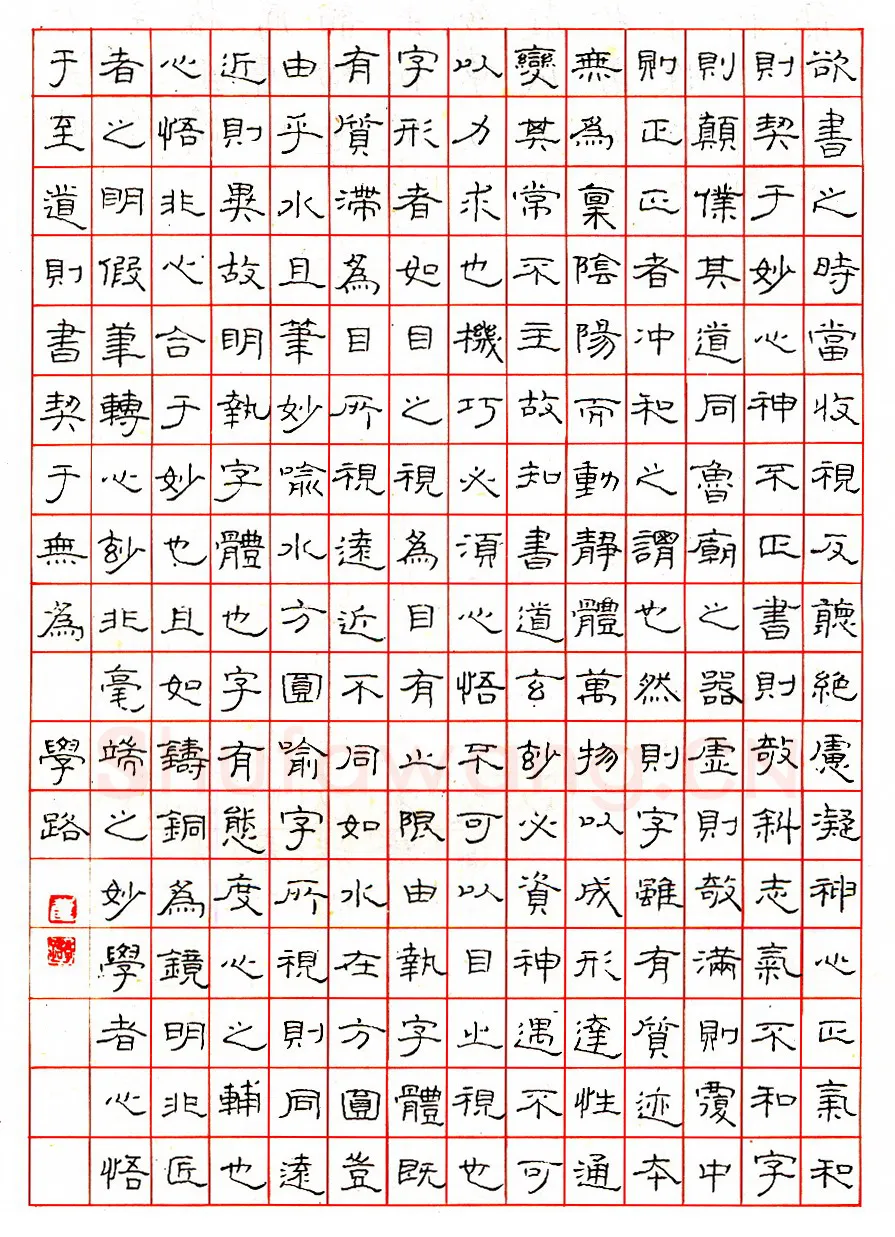 欲書之時當收視反聽絶慮凝神心正氣和
則契于妙心神不正書則攲斜志氣不和字
則顛僕其道同魯廟之器虛則攲滿則覆中
則正正者冲和之謂也然則字雖有質迹本
無為稟陰陽而動静體萬物以成形達性通
變其常不主故知書道玄玅必資神遇不可
以力求也機巧必須心悟不可以目止視也
字形者如目之視為目有止限由執字體既
有質滯為目所視遠近不同如水在方圓豈
由乎水且筆妙喻水方圓喻字所視則同遠
近則異故明執字體也字有態度心之輔也
心悟非心合于妙也且如鑄銅為鏡明非匠
者之明假筆轉心玅非毫端之妙學者心悟
于至道則書契于無為 學路
Shufawang.CN